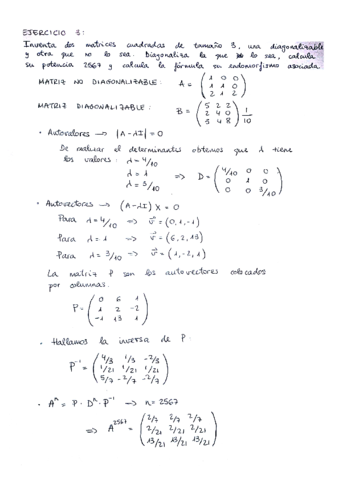 EJERCICIO 3:
Inventa dos matrices cuadradas de tamaño 3, una diagonalizable
y otra que no lo sea. Diagonaliza la que lo sea, calcula
su potencia 2567 y calcula la fórmula su endomorfismo asociada.
MATRIZ NO DIAGONALIZABLE: A = ( 1 0 0
1 1 0
2 1 2 )
MATRIZ DIAGONALIZABLE: B = ( 5 2 2
2 4 0
3 4 8 ) 1/10
• Autovalores → |A-λI| = 0
De realizar el determinante obtemos que λ tiene
los valores: λ = 4/10
λ = 1
λ = 3/10
⇒ D = ( 4/10 0 0
0 1 0
0 0 3/10 )
• Autovectores → (A-λI) X = 0
Para λ = 4/10 ⇒ v = (0, 1, -1)
Para λ = 1 ⇒ v = (6, 2, 13)
Para λ = 3/10 ⇒ v = (1, -2, 1)
La matriz P son los autovectores colocados
por columnas.
P = ( 0 6 1
1 2 -2
-1 13 1 )
• Hallamos la inversa de P:
P⁻¹ = ( 4/3 1/3 -2/3
1/21 1/21 1/21
5/7 -2/7 -2/7 )
• Aⁿ = P · Dⁿ · P⁻¹ → n = 2567
⇒ A²⁵⁶⁷ = ( 2/7 2/7 2/7
2/21 2/21 2/21
13/21 13/21 13/21 )